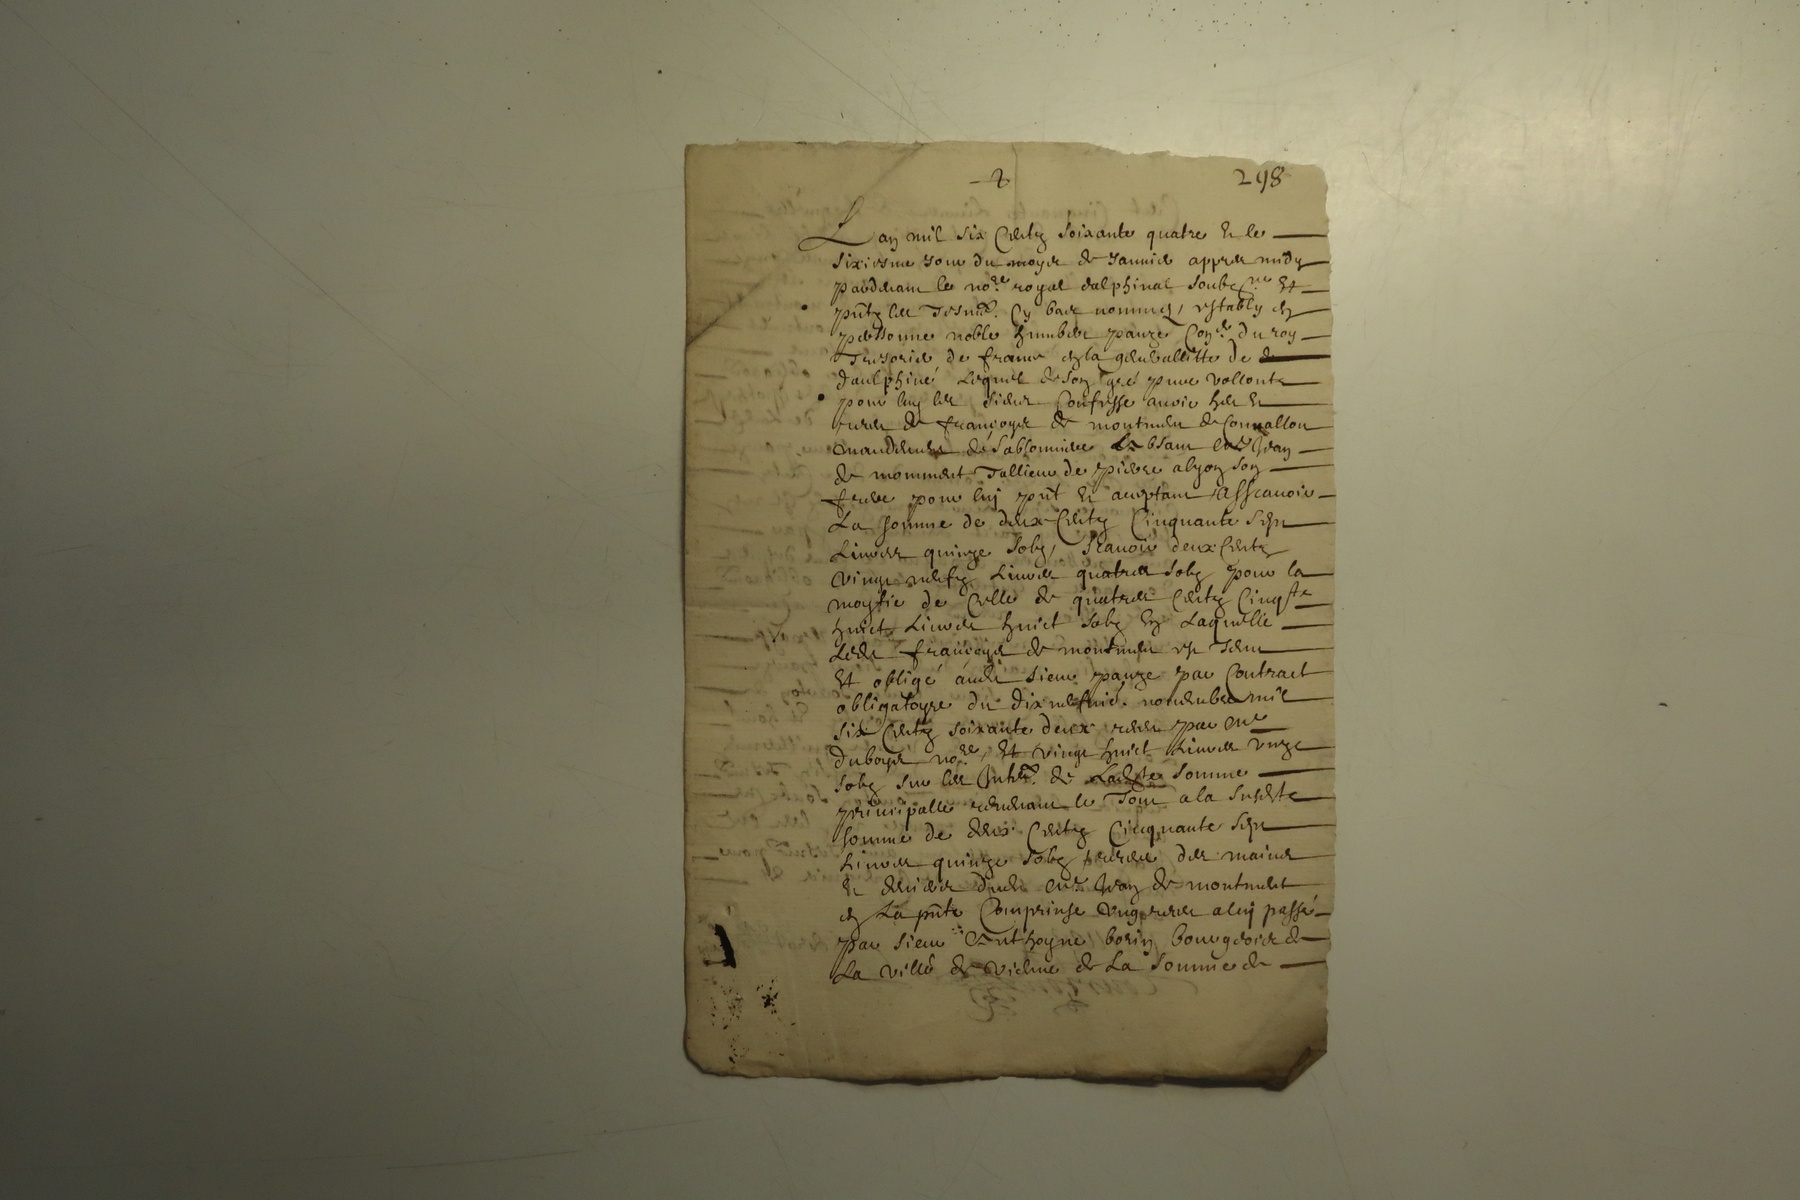 298
Lan mil six centz soixante quatre et le
sixiesme jour du moys de janvier appres midy
pardevant le no.re royal dalphinal soubz.ne et
pntz les tesm. cy bas nommes, estably en
personne noble humbert pauze con.er du roy
Tresorier de france en la generallitte de
daulphiné Lequel de son gré pure vollonte
pour luy les siens confesse avoir heu et
receu de françoys de montmen de
mandement de sablonnieres Jean
de pierre a lyon son
frere pour luy pnt et aceptant Assçavoir
La somme de deux centz cinquante sept
Livres quinze solz, sçavoir deux centz
vingt neufz Livres quatres solz pour la
moytie de celle de quatres centz cinq.te
huict Livres huict solz en Laquelle
françoys de montmen est tenu
Et obligé audit sieur pauze par contract
obligatoyre du dix neufvie. novembre mil
six centz soixante deux receu par me
duboys no.re, et vingt huict Livres unze
solz sur les de Ladite somme
principalle revenant le tout a la susdite
somme de deux centz cinquante sept
Livres quinze solz des mains
et deniers dudit Jean de
en La pnte comprinse a luy passé
par sieur Anthoyne borin bourgeois de
La ville de vienne de La somme de